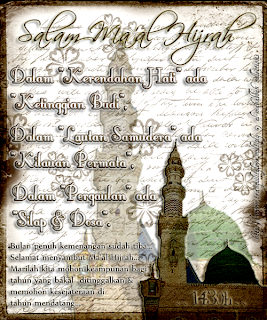 Salam Ma'al Hijrah
Dalam "Kerendahan Hati" ada
"Ketinggian Budi".
Dalam "Lautan Samudera", ada
"Kilauan Permata".
Dalam "Pergaulan" ada
"Silap & Dosa".
Bulan penuh kemenangan sudah tiba...
Selamat menyambut Maal Hijrah...
Marilah kita mohon keampunan bagi
tahun yang bakal ditinggalkan &
memohon kesejeteraan di
tahun mendatang.